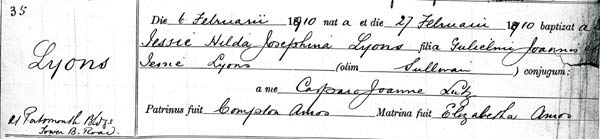 35
Die 6 Februarii 1910 nat a et die 27 Februarii 1910 baptizat a
Jessie Hilda Josephina Lyons filia Gulielmi Joannis et
Lyons
Jessie Lyons (olim Sullivan) conjugum:
a me Casparo Joanne Lutz
Patrinus fuit Compton Amos Matrina fuit Elizabetha Amos
21 Portsmouth Bldgs
Tower B. Road.